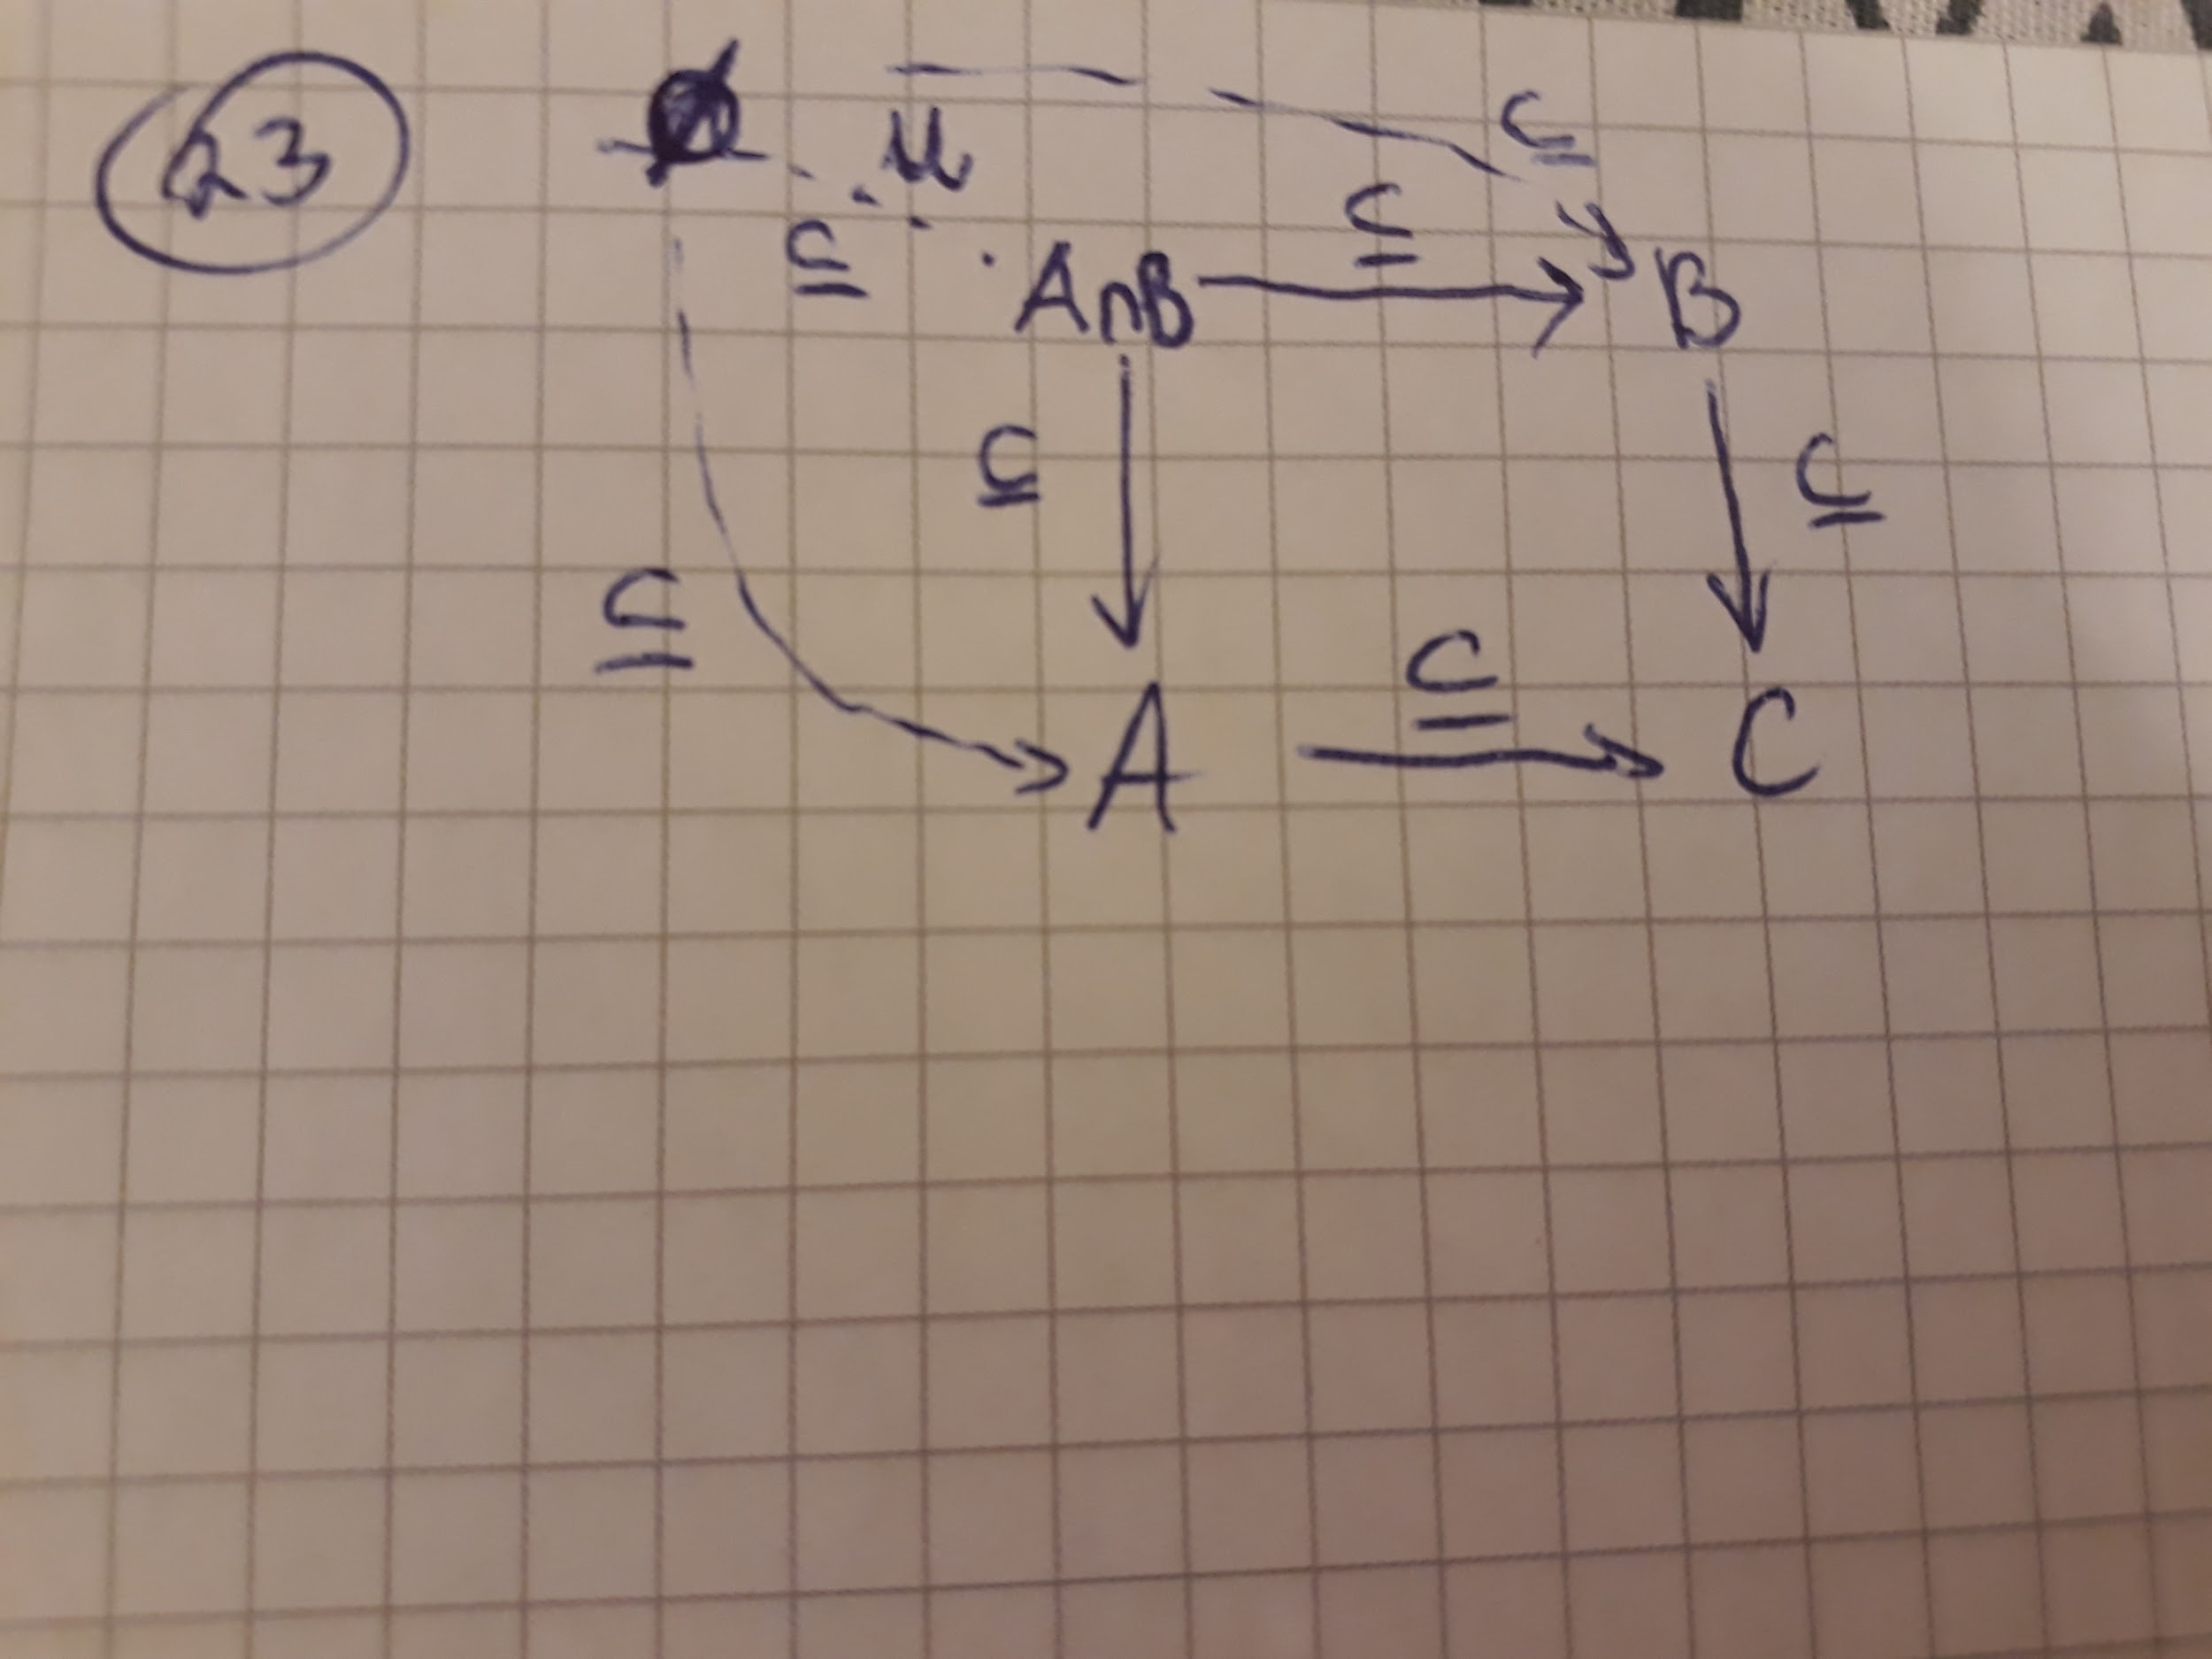 23 u ⊆
⊆ ⊆
A∩B B
⊆ ⊆
⊆ ⊆
A C